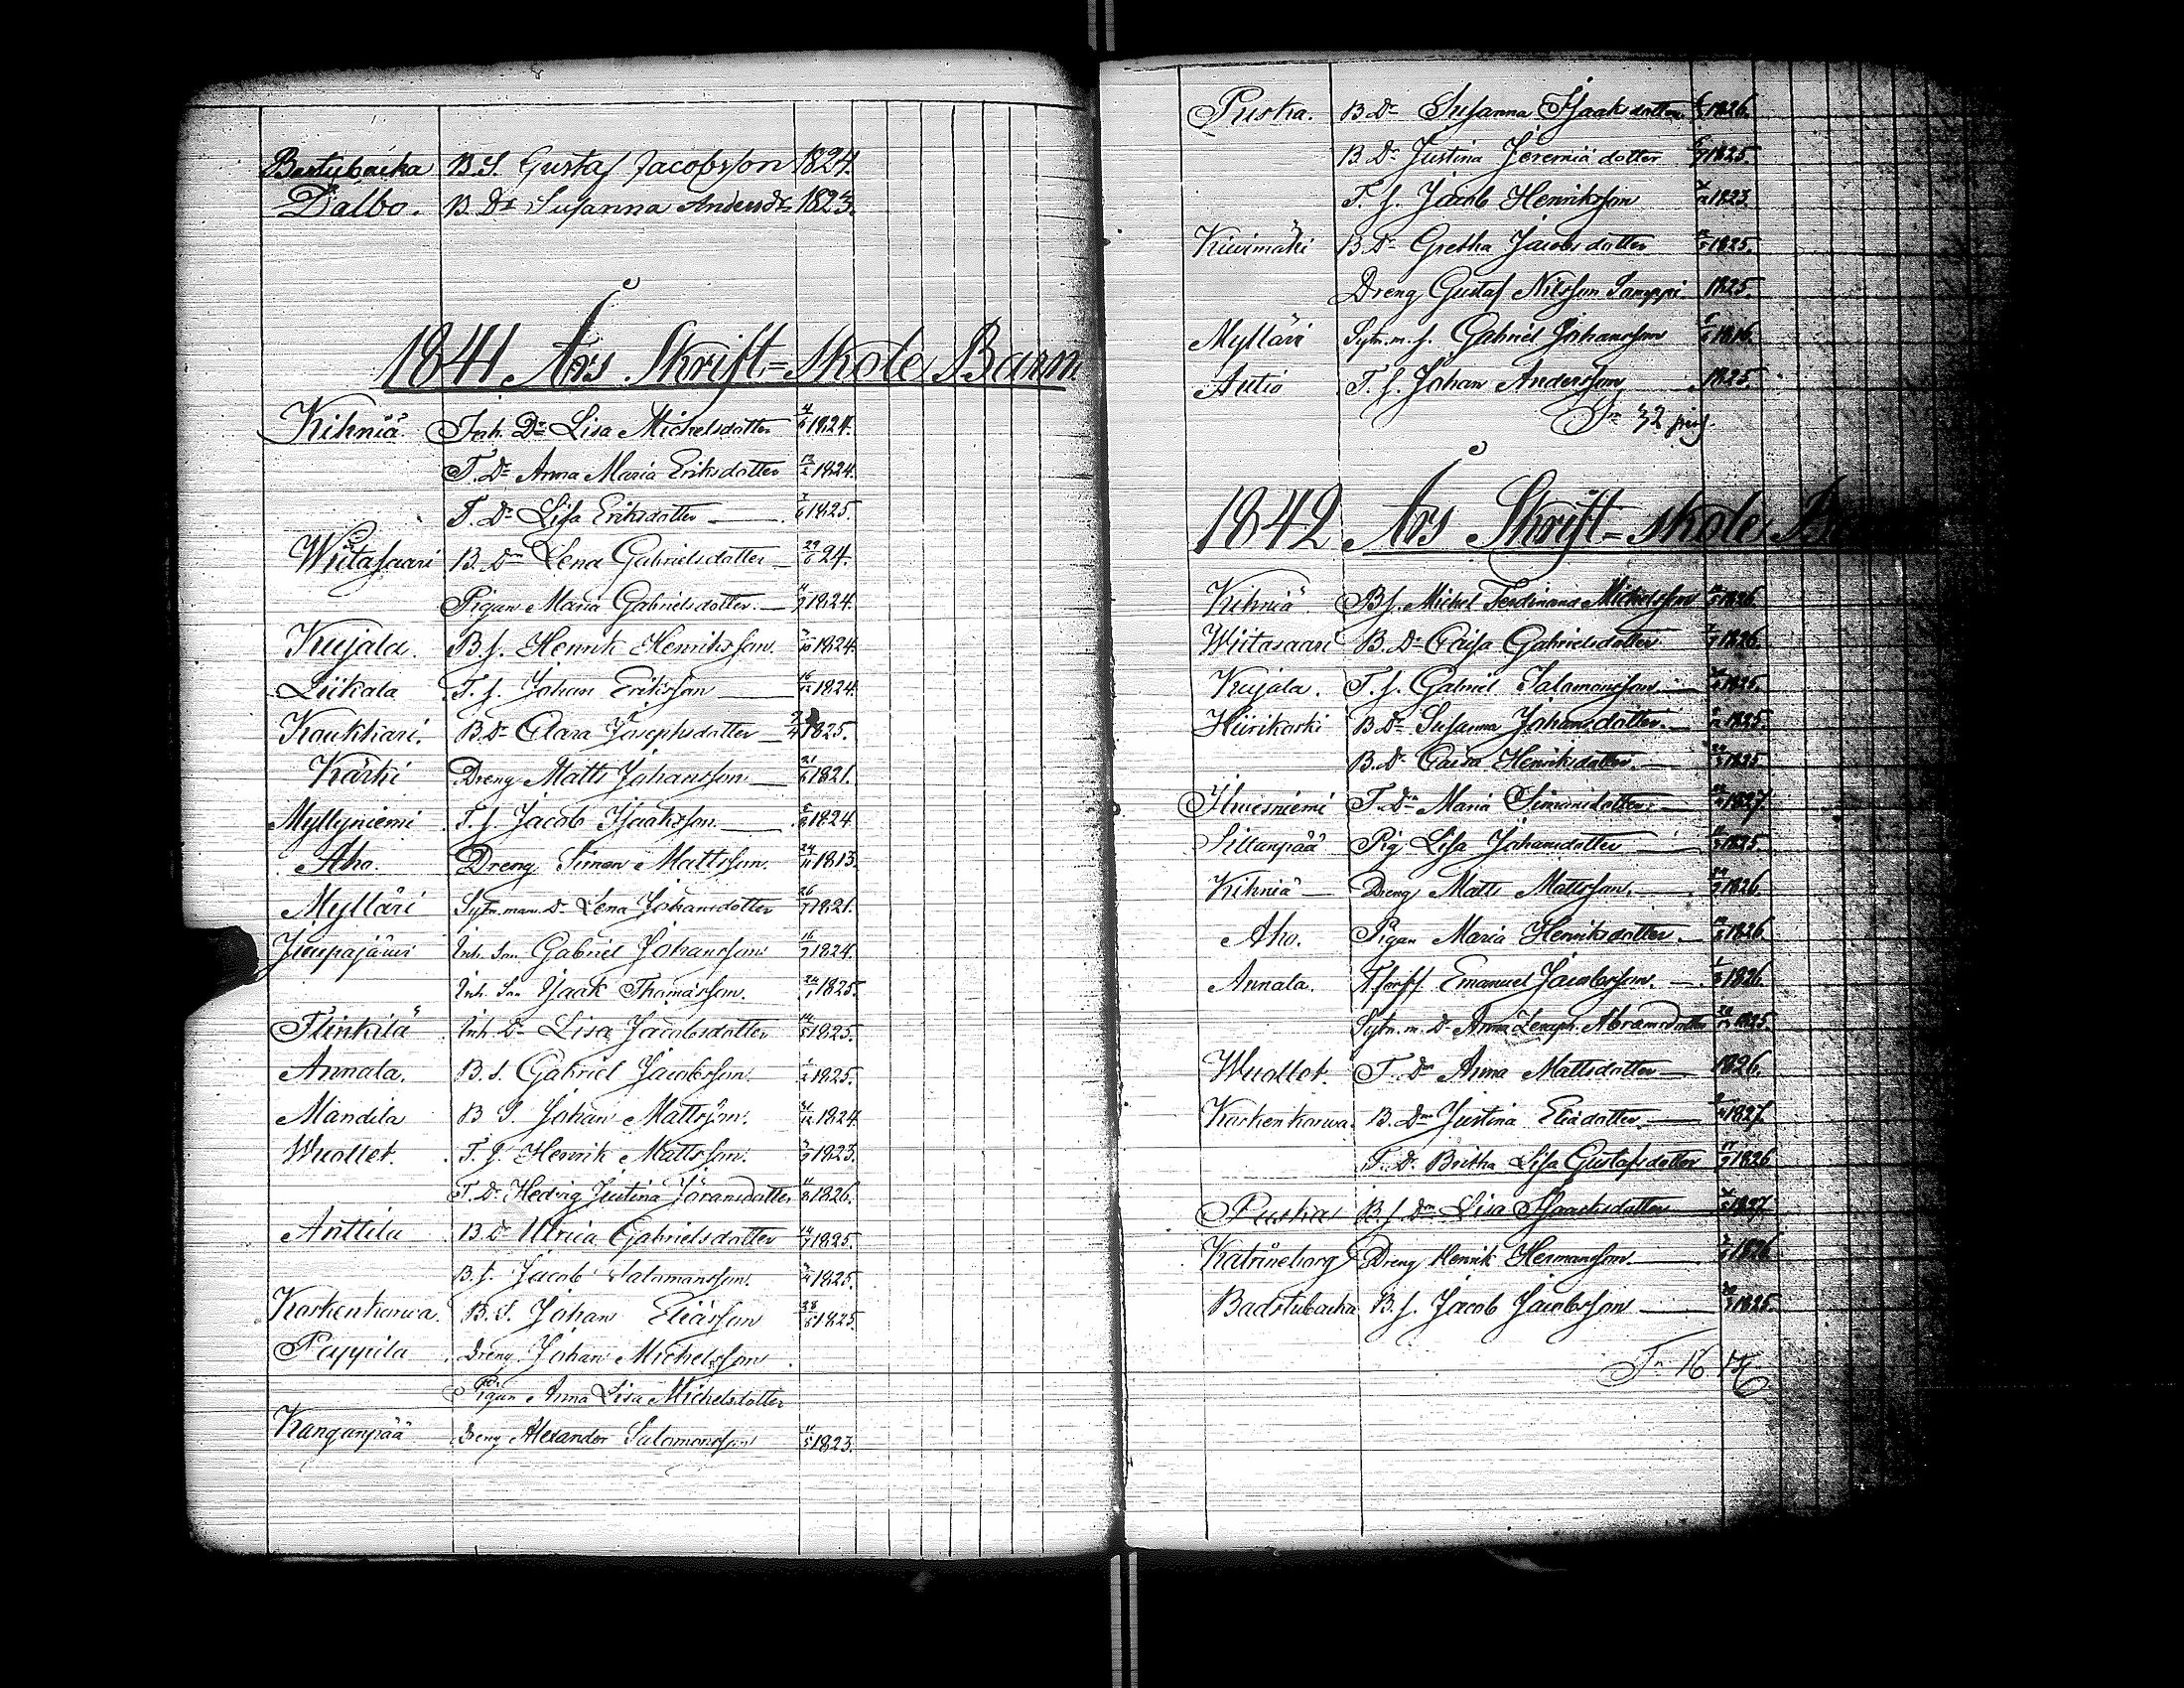 Bastubacka B. S. Gustaf Jacobsson 1824.
Dalbo. B. Dr Susanna Andersdr 1823.
1841 Års Skrift=skole Barn
Kihniä Inh. Dr Lisa Michelsdotter 4/6 1824.
T. Dr Anna Maria Eriksdotter 13/2 1824.
T. Dr Lisa Eriksdotter 1825.
Wiitasaari B. Dr Lena Gabrielsdotter 29/6 24.
Pigan Maria Gabrielsdotter 1824.
Kujala. B. S. Henrik Henriksson. 1824.
Liikala T. S. Johan Eriksson 16/12 1824.
Kaukkari. B. Dr Clara Josephsdotter 1825.
Kärki Dreng Matts Johansson 21/6 1821.
Myllyniemi T. S. Jacob Isaaksson. 1824.
Aho. Dreng Simon Mattsson. 24/11 1813.
Mylläri Sytn.man. Dr Lena Johansdotter 26/7 1821.
Jieupajärvi Inh. Son Gabriel Johansson 16/7 1824.
Inh. Son Isaak Thomasson. 24/1 1825.
Flinkilä Inh. Dr Lisa Jacobsdotter 14/5 1825.
Annala. B. S. Gabriel Jacobsson. 1825.
Mandila B. S. Johan Mattsson. 1824.
Wuollet. T. S. Henrik Mattsson. 1823.
T. Dr Hedvig Justina Göransdotter 1826.
Anttila B. Dr Ulrica Gabrielsdotter 14/7 1825.
B. S. Jacob Salomonsson. 1825.
Karhenkorwa. B. S. Johan Eliasson 28/5 1825.
Pappila Dreng Johan Michelsson
Pigan Anna Lisa Michelsdotter
Kanganpää Dreng Alexander Salomonsson 1823.
Puska. B. Dr Susanna Isaaksdotter 1826.
B. Dr Justina Jeremiä dotter 1825.
T. S. Jacob Henriksson 1823.
Kivimäki B. Dr Gretha Jacobsdotter 1825.
Dreng Gustaf Nilsson Samppi 1825.
Mylläri Sytn. m. S. Gabriel Johansson 1816.
Autio T. S. Johan Andersson 1825.
Sa 32
1842 Års Skrift=skole Barn
Kihniä B. S. Michel Ferdinand Michelsson 1826.
Wiitasaari B. Dr Caisa Gabrielsdotter 1826.
Kujala. T. S. Gabriel Salomonsson 1825.
Hiirikoski B. Dr Susanna Johansdotter 1825.
B. Dr Caisa Henriksdotter 1825
Ilvesniemi T. Dr Maria Simonsdotter 1827.
Sillanpää Pig. Lisa Johansdotter 1825.
Kihniä Dreng Matts Mattsson. 1826.
Aho. Pigan Maria Henriksdotter 1826.
Annala. Emanuel Jacobsson. 1826.
Sytn. m. Dr Anna Abramsdotter 1825.
Wuollet. T. Dr Anna Mattsdotter 1826.
Karhenkorwa. B. Dr Justina Eliädotter 1827.
T. Dr Britha Lisa Gustafsdotter 17/9 1826
Puska B. S. Dr Lisa Isaacksdotter 1827.
Katrineborg Dreng Henrik Hermansson 1826
Badstubacka B. S. Jacob Jacobsson 1825.
Sa 16